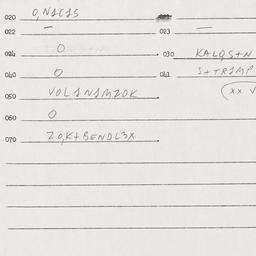 020 0,N1C1S
022 — 023 —
024 0 030 KALOS+N
040 0 041 S+TR1MP
(xx V
050 VOL1N1MZOK
060 0
070 ZO,K+BENDL3X